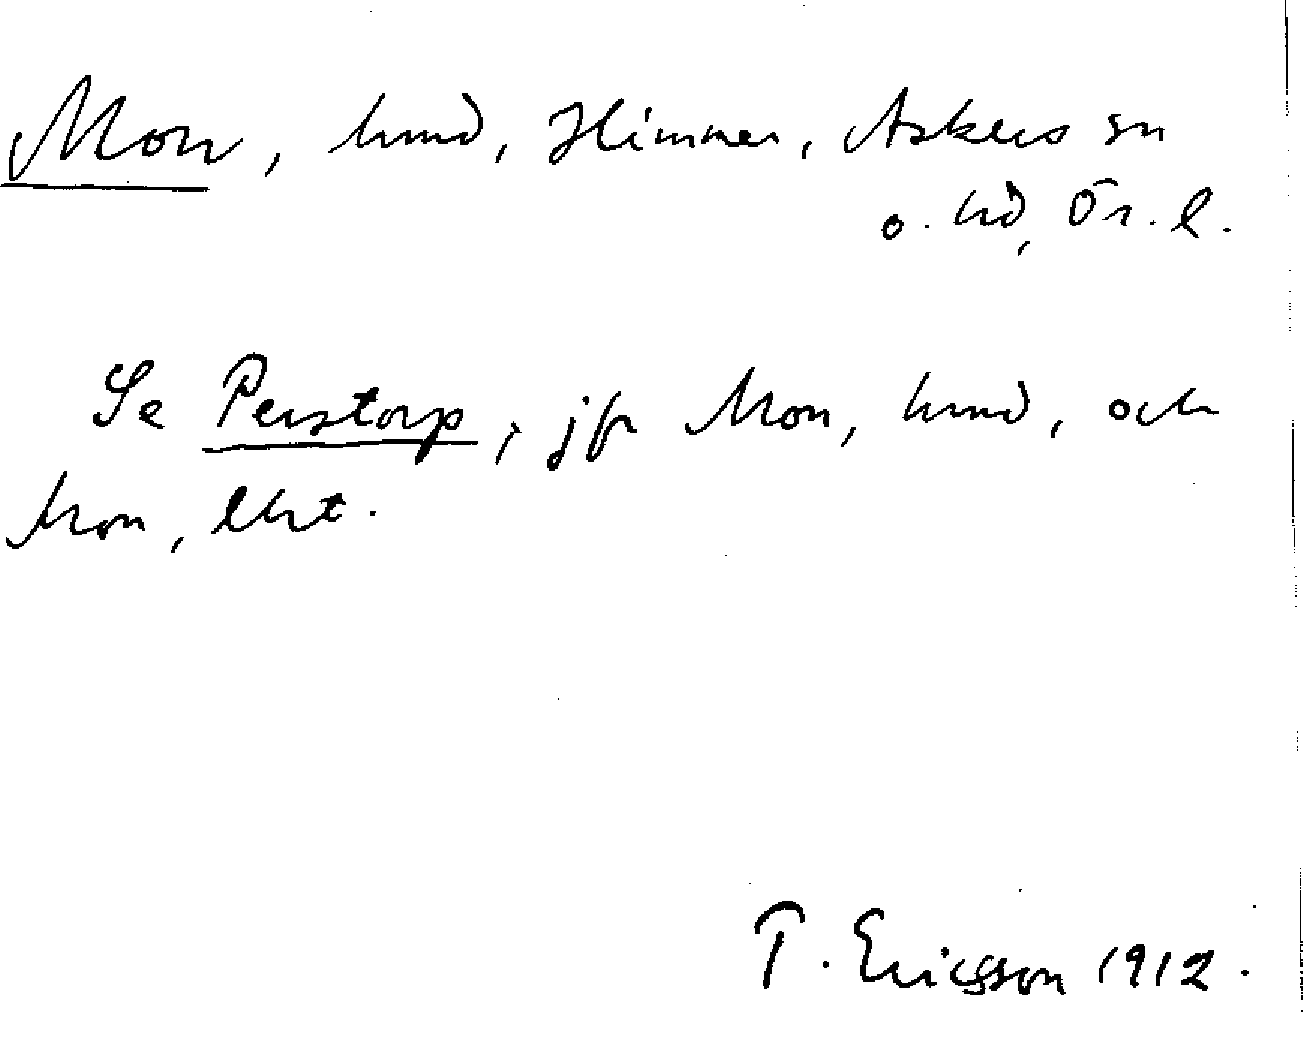 Mon, hmd, Himmer, Askers sn
o. hd, Ör. l.
Se Perstorp; jfr Mon, hmd, och
Mon, lht.
T. Ericsson 1912.